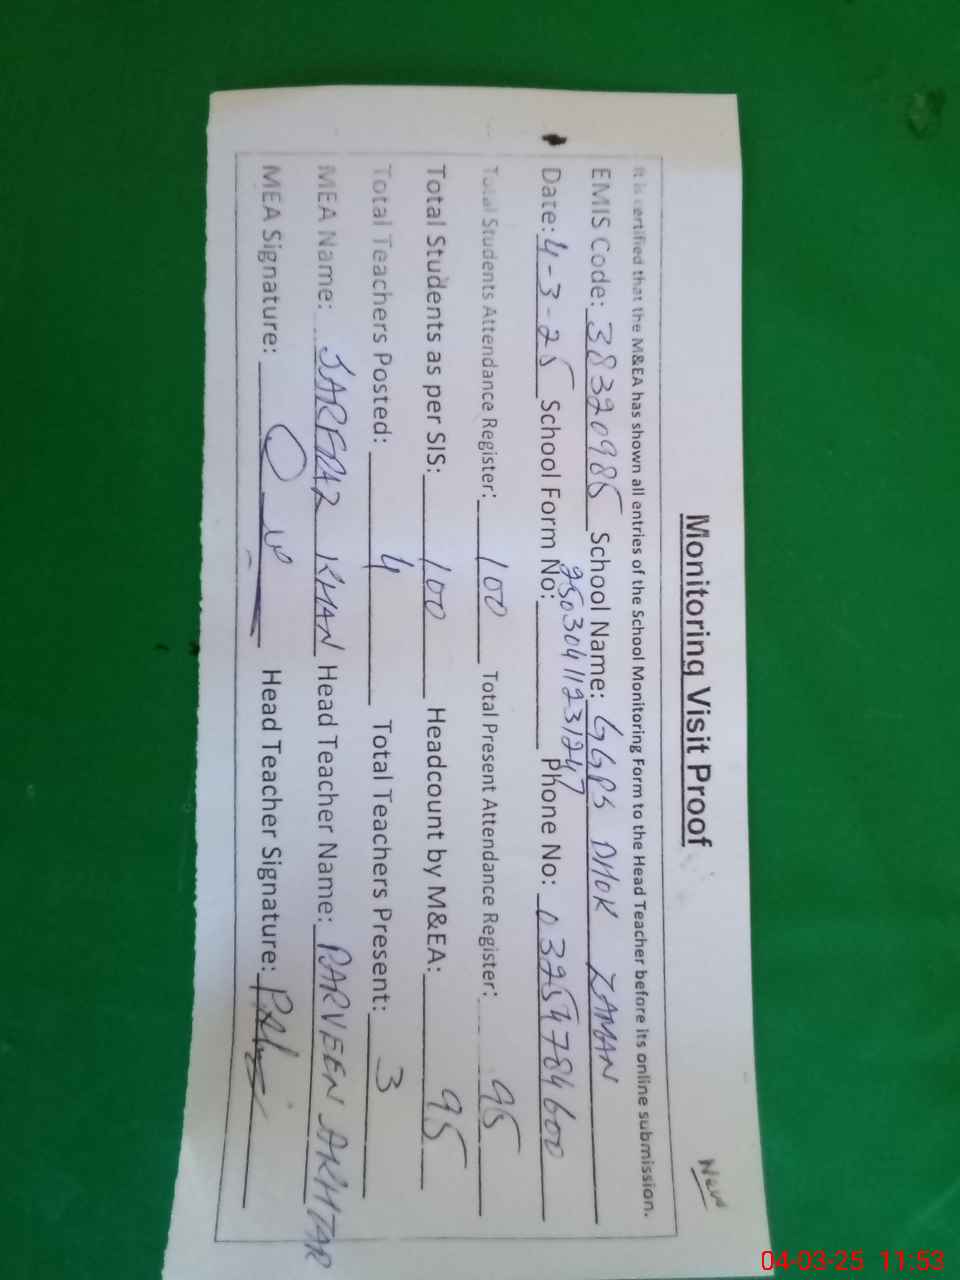 New
Monitoring Visit Proof
It is certified that the M&EA has shown all entries of the School Monitoring Form to the Head Teacher before its online submission.
EMIS Code: 38320985 School Name: GGPS DHOK ZAMAN
Date: 4-3-25 School Form No: 25030411231247 Phone No: 03254784600
Total Students Attendance Register: 100 Total Present Attendance Register: 95
Total Students as per SIS: 100 Headcount by M&EA: 95
Total Teachers Posted: 4 Total Teachers Present: 3
MEA Name: SARFRAZ KHAN Head Teacher Name: PARVEEN AKHTAR
MEA Signature: Head Teacher Signature:
04-03-25 11:53